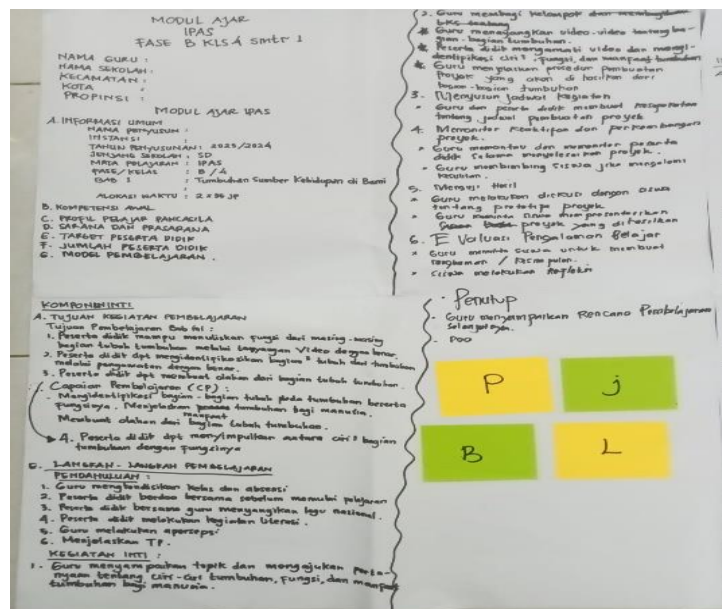 MODUL AJAR
IPAS
FASE B KLS 4 SMTR 1
NAMA GURU :
NAMA SEKOLAH :
KECAMATAN :
KOTA :
PROPINSI :
MODUL AJAR IPAS
A. INFORMASI UMUM
NAMA PENYUSUN :
INSTANSI :
TAHUN PENYUSUNAN : 2023/2024
JENJANG SEKOLAH : SD
MATA PELAJARAN : IPAS
FASE/KELAS : B / 4
BAB 1 : Tumbuhan Sumber Kehidupan di Bumi
ALOKASI WAKTU : 2 x 36 JP
B. KOMPETENSI AWAL
C. PROFIL PELAJAR PANCASILA
D. SARANA DAN PRASARANA
E. TARGET PESERTA DIDIK
F. JUMLAH PESERTA DIDIK
G. MODEL PEMBELAJARAN.
KOMPONEN INTI
A. TUJUAN KEGIATAN PEMBELAJARAN
Tujuan Pembelajaran Bab ini :
1. Peserta didik mampu menuliskan fungsi dari masing-masing
bagian tubuh tumbuhan melalui tayangan Video dengan benar.
2. Peserta didik dpt mengidentifikasikan bagian² tubuh dari tumbuhan
melalui pengamatan dengan benar.
3. Peserta didik dpt membuat olahan dari bagian tubuh tumbuhan.
Capaian Pembelajaran (CP) :
- Mengidentifikasi bagian-bagian tubuh pada tumbuhan beserta
fungsinya. Menjelaskan manfaat tumbuhan bagi manusia.
Membuat olahan dari bagian tubuh tumbuhan.
4. Peserta didik dpt menyimpulkan antara ciri² bagian
tumbuhan dengan fungsinya
LANGKAH-LANGKAH PEMBELAJARAN
PENDAHULUAN :
1. Guru mengkondisikan kelas dan absensi
2. Peserta didik berdoa bersama sebelum memulai pelajaran
3. Peserta didik bersama guru menyanyikan lagu nasional.
4. Peserta didik melakukan kegiatan literasi.
5. Guru melakukan apersepsi
6. Menjelaskan TP.
KEGIATAN INTI :
1. Guru menyampaikan topik dan mengajukan perta-
nyaan tentang ciri-ciri tumbuhan, fungsi, dan manfaat
tumbuhan bagi manusia.
2. Guru membagi kelompok dan membagikan
LKS tentang
* Guru menayangkan video-video tentang ba-
gian-bagian tumbuhan.
* Peserta didik mengamati video dan mengi-
dentifikasi ciri², fungsi, dan manfaat tumbuhan
* Guru menjelaskan prosedur pembuatan
proyek yang akan di hasilkan dari
bagian-bagian tumbuhan
3. Menyusun Jadwal kegiatan
* Guru dan peserta didik membuat kesepakatan
tentang jadwal pembuatan proyek
4. Memonitor keaktifan dan perkembangan
proyek.
* Guru memantau dan memonitor peserta
didik selama menyelesaikan proyek.
* Guru membimbing siswa jika mengalami
kesulitan.
5. Menguji Hasil
* Guru melakukan diskusi dengan siswa
tentang prototipe proyek
* Guru meminta siswa mempresentasikan
proyek yang dihasilkan
6. Evaluasi Pengalaman Belajar
* Guru meminta siswa untuk membuat
rangkuman / kesimpulan.
* Siswa melakukan Refleksi
Penutup
- Guru menyampaikan Rencana Pembelajaran
Selanjutnya.
- Doa
P
j
B
L